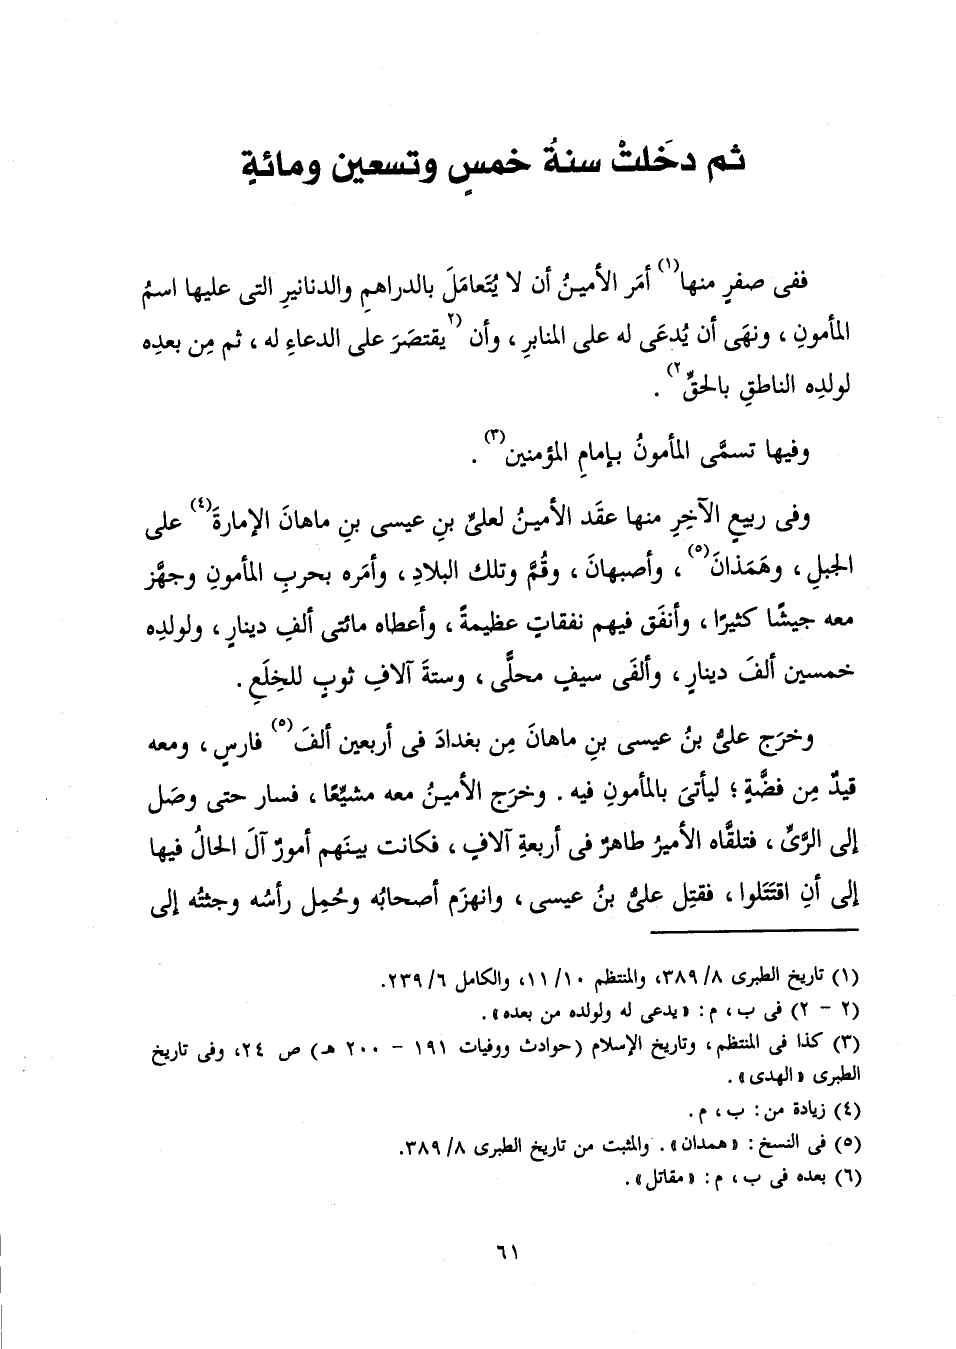 ثم دخَلتْ سنةُ خمسٍ وتسعين ومائةٍ
ففى صفرٍ منها(١) أمَر الأمينُ أن لا يُتَعامَلَ بالدراهمِ والدنانيرِ التى عليها اسمُ
المأمونِ ، ونهَى أن يُدعَى له على المنابرِ ، وأن (٢يقتصَرَ على الدعاءِ له ، ثم مِن بعدِه
لولدِه الناطقِ بالحقِّ٢) .
وفيها تسمَّى المأمونُ بإمامِ المؤمنين(٣) .
وفى ربيعٍ الآخِرِ منها عقَد الأمينُ لعلىِّ بنِ عيسى بنِ ماهانَ الإمارةَ(٤) على
الجبلِ ، وهَمَذانَ(٥) ، وأصبهانَ ، وقُمَّ وتلك البلادِ ، وأمَره بحربِ المأمونِ وجهَّز
معه جيشًا كثيرًا ، وأنفَق فيهم نفقاتٍ عظيمةً ، وأعطاه مائتى ألفِ دينارٍ ، ولولدِه
خمسين ألفَ دينارٍ ، وألفَى سيفٍ محلَّى ، وستةَ آلافِ ثوبٍ للخِلَعِ .
وخرَج علىُّ بنُ عيسى بنِ ماهانَ مِن بغدادَ فى أربعين ألفَ(٥) فارسٍ ، ومعه
قيدٌ مِن فضَّةٍ ؛ ليأتىَ بالمأمونِ فيه . وخرَج الأمينُ معه مشيِّعًا ، فسار حتى وصَل
إلى الرَّىِّ ، فتلقَّاه الأميرُ طاهرٌ فى أربعةِ آلافٍ ، فكانت بينَهم أمورٌ آلَ الحالُ فيها
إلى أنِ اقتَتَلوا ، فقتِل علىُّ بنُ عيسى ، وانهزَم أصحابُه وحُمِل رأسُه وجثتُه إلى
(١) تاريخ الطبرى ٨/ ٣٨٩، والمنتظم ١٠/ ١١، والكامل ٦/ ٢٣٩.
(٢ - ٢) فى ب ، م : «يدعى له ولولده من بعده» .
(٣) كذا فى المنتظم ، وتاريخ الإسلام (حوادث ووفيات ١٩١ - ٢٠٠ هـ) ص ٢٤، وفى تاريخ
الطبرى «الهدى» .
(٤) زيادة من : ب ، م .
(٥) فى النسخ : «همدان» . والمثبت من تاريخ الطبرى ٨/ ٣٨٩.
(٦) بعده فى ب ، م : «مقاتل» .
٦١